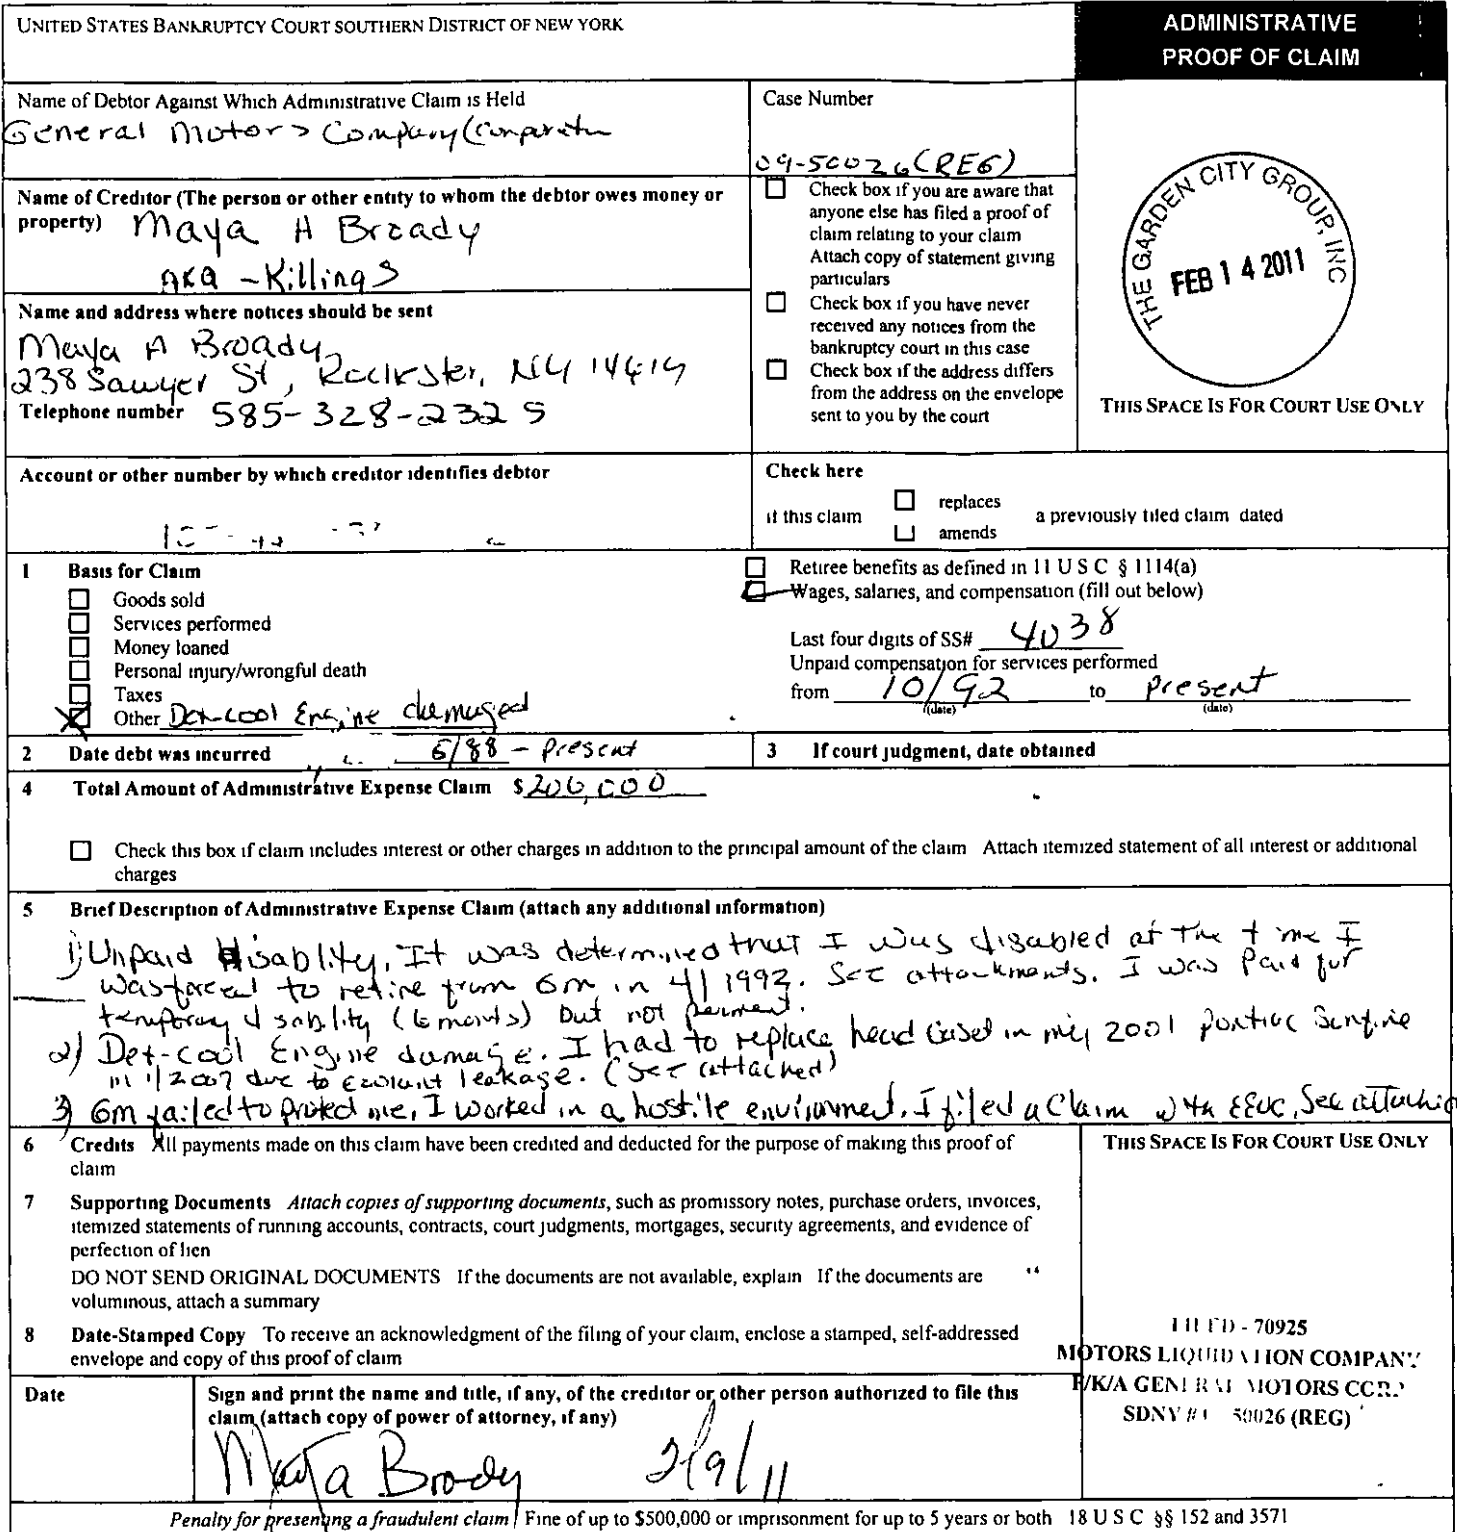 UNITED STATES BANKRUPTCY COURT SOUTHERN DISTRICT OF NEW YORK
ADMINISTRATIVE
PROOF OF CLAIM
Name of Debtor Against Which Administrative Claim is Held
General Motors Company (
Case Number
09-50026 (REG)
Name of Creditor (The person or other entity to whom the debtor owes money or
property) Maya A Broady
AKA - Killings
Check box if you are aware that
anyone else has filed a proof of
claim relating to your claim
Attach copy of statement giving
particulars
Check box if you have never
received any notices from the
bankruptcy court in this case
Check box if the address differs
from the address on the envelope
sent to you by the court
THE GARDEN CITY GROUP, INC
FEB 14 2011
THIS SPACE IS FOR COURT USE ONLY
Name and address where notices should be sent
Maya A Broady
238 Sawyer St, Rochester, NY 14619
Telephone number 585-328-2325
Account or other number by which creditor identifies debtor
Check here
if this claim
replaces
amends
a previously filed claim dated
1 Basis for Claim
Goods sold
Services performed
Money loaned
Personal injury/wrongful death
Taxes
Other Dex-cool Engine damaged
Retiree benefits as defined in 11 U S C § 1114(a)
Wages, salaries, and compensation (fill out below)
Last four digits of SS# 4038
Unpaid compensation for services performed
from 10/92 to Present
(date) (date)
2 Date debt was incurred 5/88 - Present
3 If court judgment, date obtained
4 Total Amount of Administrative Expense Claim $ 206,000
Check this box if claim includes interest or other charges in addition to the principal amount of the claim Attach itemized statement of all interest or additional
charges
5 Brief Description of Administrative Expense Claim (attach any additional information)
1) Unpaid Disablity. It was determined that I was disabled at the time I
was forced to retire from Gm in 4/1992. See attachments. I was Paid for
temporary disablity (6 months) but not perment.
2) Dex-cool Engine damage. I had to replace head Gasket in my 2001 pontiac Sunfire
in 1/2007 due to coolant leakage. (See attached)
3) Gm failed to protect me, I worked in a hostile environment. I filed a Claim with EEOC, See attached
6 Credits All payments made on this claim have been credited and deducted for the purpose of making this proof of
claim
7 Supporting Documents Attach copies of supporting documents, such as promissory notes, purchase orders, invoices,
itemized statements of running accounts, contracts, court judgments, mortgages, security agreements, and evidence of
perfection of lien
DO NOT SEND ORIGINAL DOCUMENTS If the documents are not available, explain If the documents are
voluminous, attach a summary
8 Date-Stamped Copy To receive an acknowledgment of the filing of your claim, enclose a stamped, self-addressed
envelope and copy of this proof of claim
THIS SPACE IS FOR COURT USE ONLY
FILED - 70925
MOTORS LIQUIDATION COMPANY
F/K/A GENERAL MOTORS CORP
SDNY # 50026 (REG)
Date
Sign and print the name and title, if any, of the creditor or other person authorized to file this
claim (attach copy of power of attorney, if any)
Maya Broady 2/9/11
Penalty for presenting a fraudulent claim Fine of up to $500,000 or imprisonment for up to 5 years or both 18 U S C §§ 152 and 3571